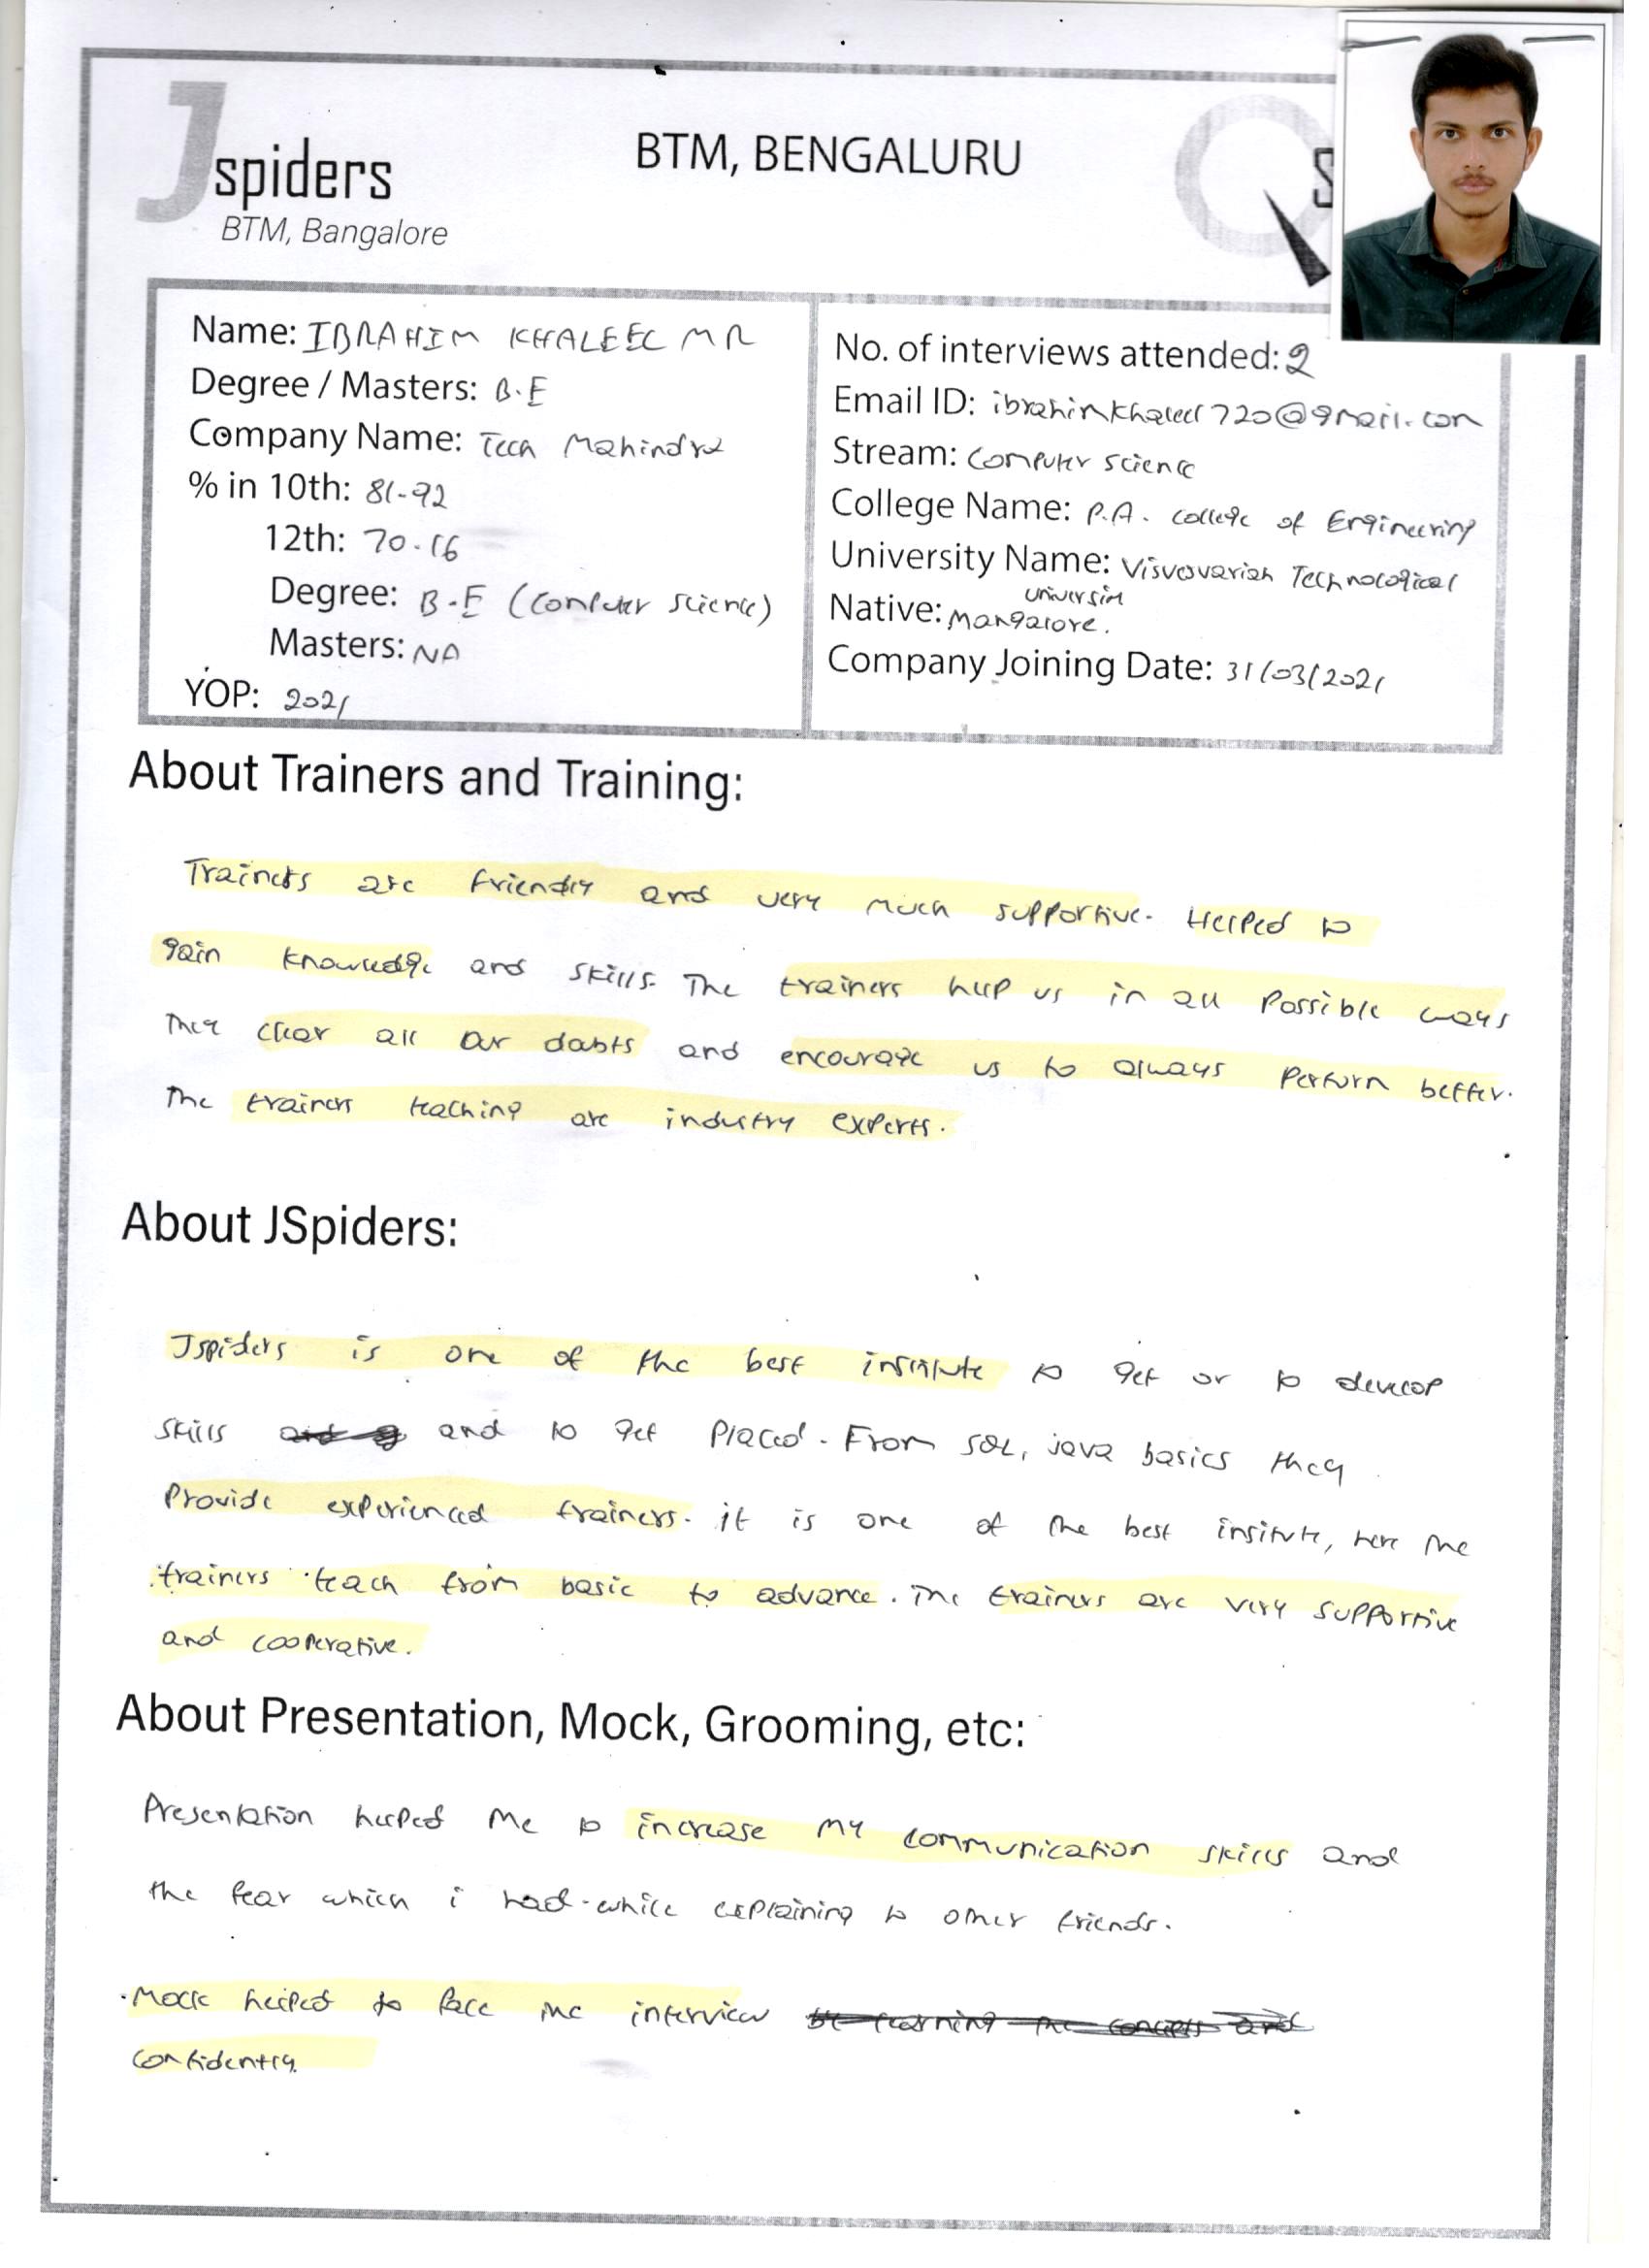 Jspiders
BTM, Bangalore
BTM, BENGALURU
Name: IBRAHIM KHALEEL M R
Degree / Masters: B.E
Company Name: Tech Mahindra
% in 10th: 81.92
12th: 70.16
Degree: B.E (Computer science)
Masters: NA
YOP: 2021
No. of interviews attended: 2
Email ID: ibrahimkhaleel720@gmail.com
Stream: Computer science
College Name: P.A. college of Engineering
University Name: Visvesvariah Technological
university
Native: Mangalore.
Company Joining Date: 31/03/2021
About Trainers and Training:
Trainers are friendly and very much supportive. Helped to
gain knowledge and skills. The trainers help us in all possible ways
They clear all our doubts and encourage us to always perform better.
The trainers teaching are industry experts.
About JSpiders:
Jspiders is one of the best institute to get or to develop
skills and to get placed. From SQL, java basics they
provide experienced trainers. it is one of the best insitute, here the
trainers teach from basic to advance. The trainers are very supportive
and cooperative.
About Presentation, Mock, Grooming, etc:
Presentation helped me to increase my communication skills and
the fear which i had while explaining to other friends.
Mock helped to face the interview
confidently.